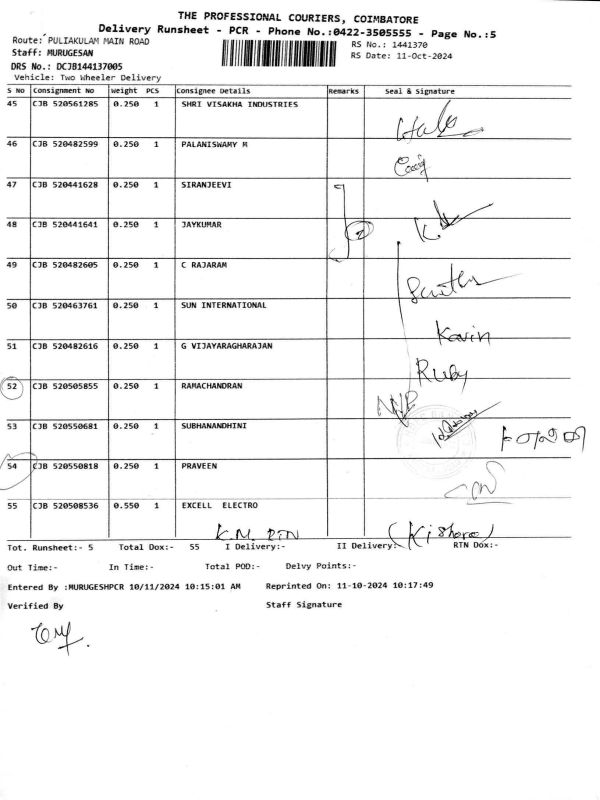 THE PROFESSIONAL COURIERS, COIMBATORE
Delivery Runsheet - PCR - Phone No.:0422-3505555 - Page No.:5
Route: PULIAKULAM MAIN ROAD RS No.: 1441370
Staff: MURUGESAN RS Date: 11-Oct-2024
DRS No.: DCJB144137005
Vehicle: Two Wheeler Delivery
S No Consignment No Weight PCS Consignee Details Remarks Seal & Signature
45 CJB 520561285 0.250 1 SHRI VISAKHA INDUSTRIES
46 CJB 520482599 0.250 1 PALANISWAMY M
47 CJB 520441628 0.250 1 SIRANJEEVI
48 CJB 520441641 0.250 1 JAYKUMAR 2
49 CJB 520482605 0.250 1 C RAJARAM
50 CJB 520463761 0.250 1 SUN INTERNATIONAL Kavin
51 CJB 520482616 0.250 1 G VIJAYARAGHARAJAN Ruby
52 CJB 520505855 0.250 1 RAMACHANDRAN
53 CJB 520550681 0.250 1 SUBHANANDHINI
54 CJB 520550818 0.250 1 PRAVEEN
55 CJB 520508536 0.550 1 EXCELL ELECTRO
(Kishore)
Tot. Runsheet:- 5 Total Dox:- 55 I Delivery:- II Delivery:- RTN Dox:-
Out Time:- In Time:- Total POD:- Delvy Points:-
Entered By :MURUGESHPCR 10/11/2024 10:15:01 AM Reprinted On: 11-10-2024 10:17:49
Verified By Staff Signature